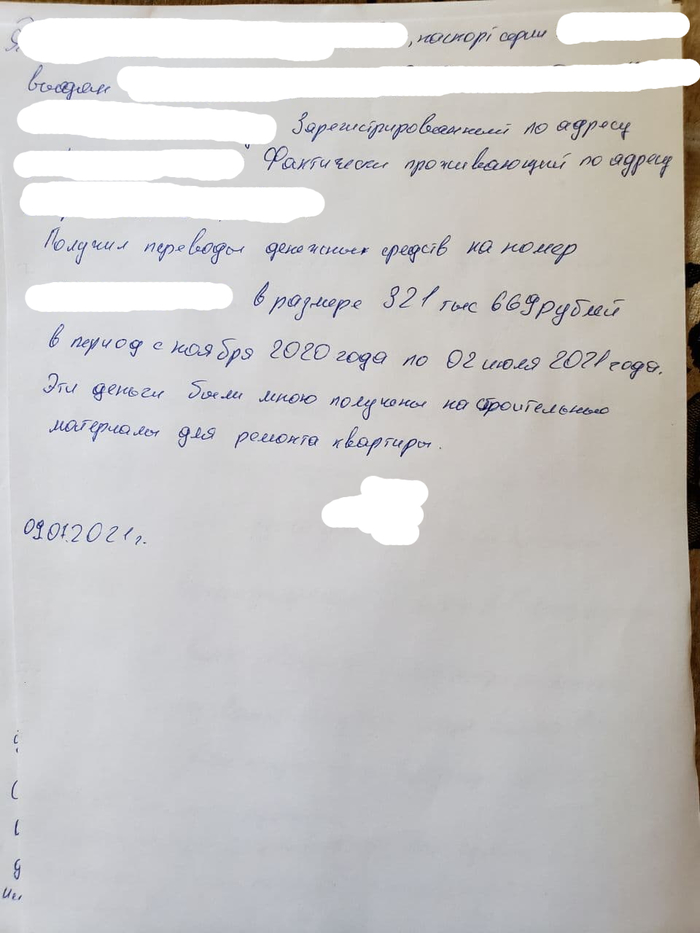 Я
, паспорт серии
выдан
Зарегистрированный по адресу
Фактически проживающий по адресу
Получил переводы денежных средств на номер
в размере 321 тыс 669 рублей
в период с ноября 2020 года по 02 июля 2021 года.
Эти деньги были мною получены на строительные
материалы для ремонта квартиры.
09.07.2021 г.